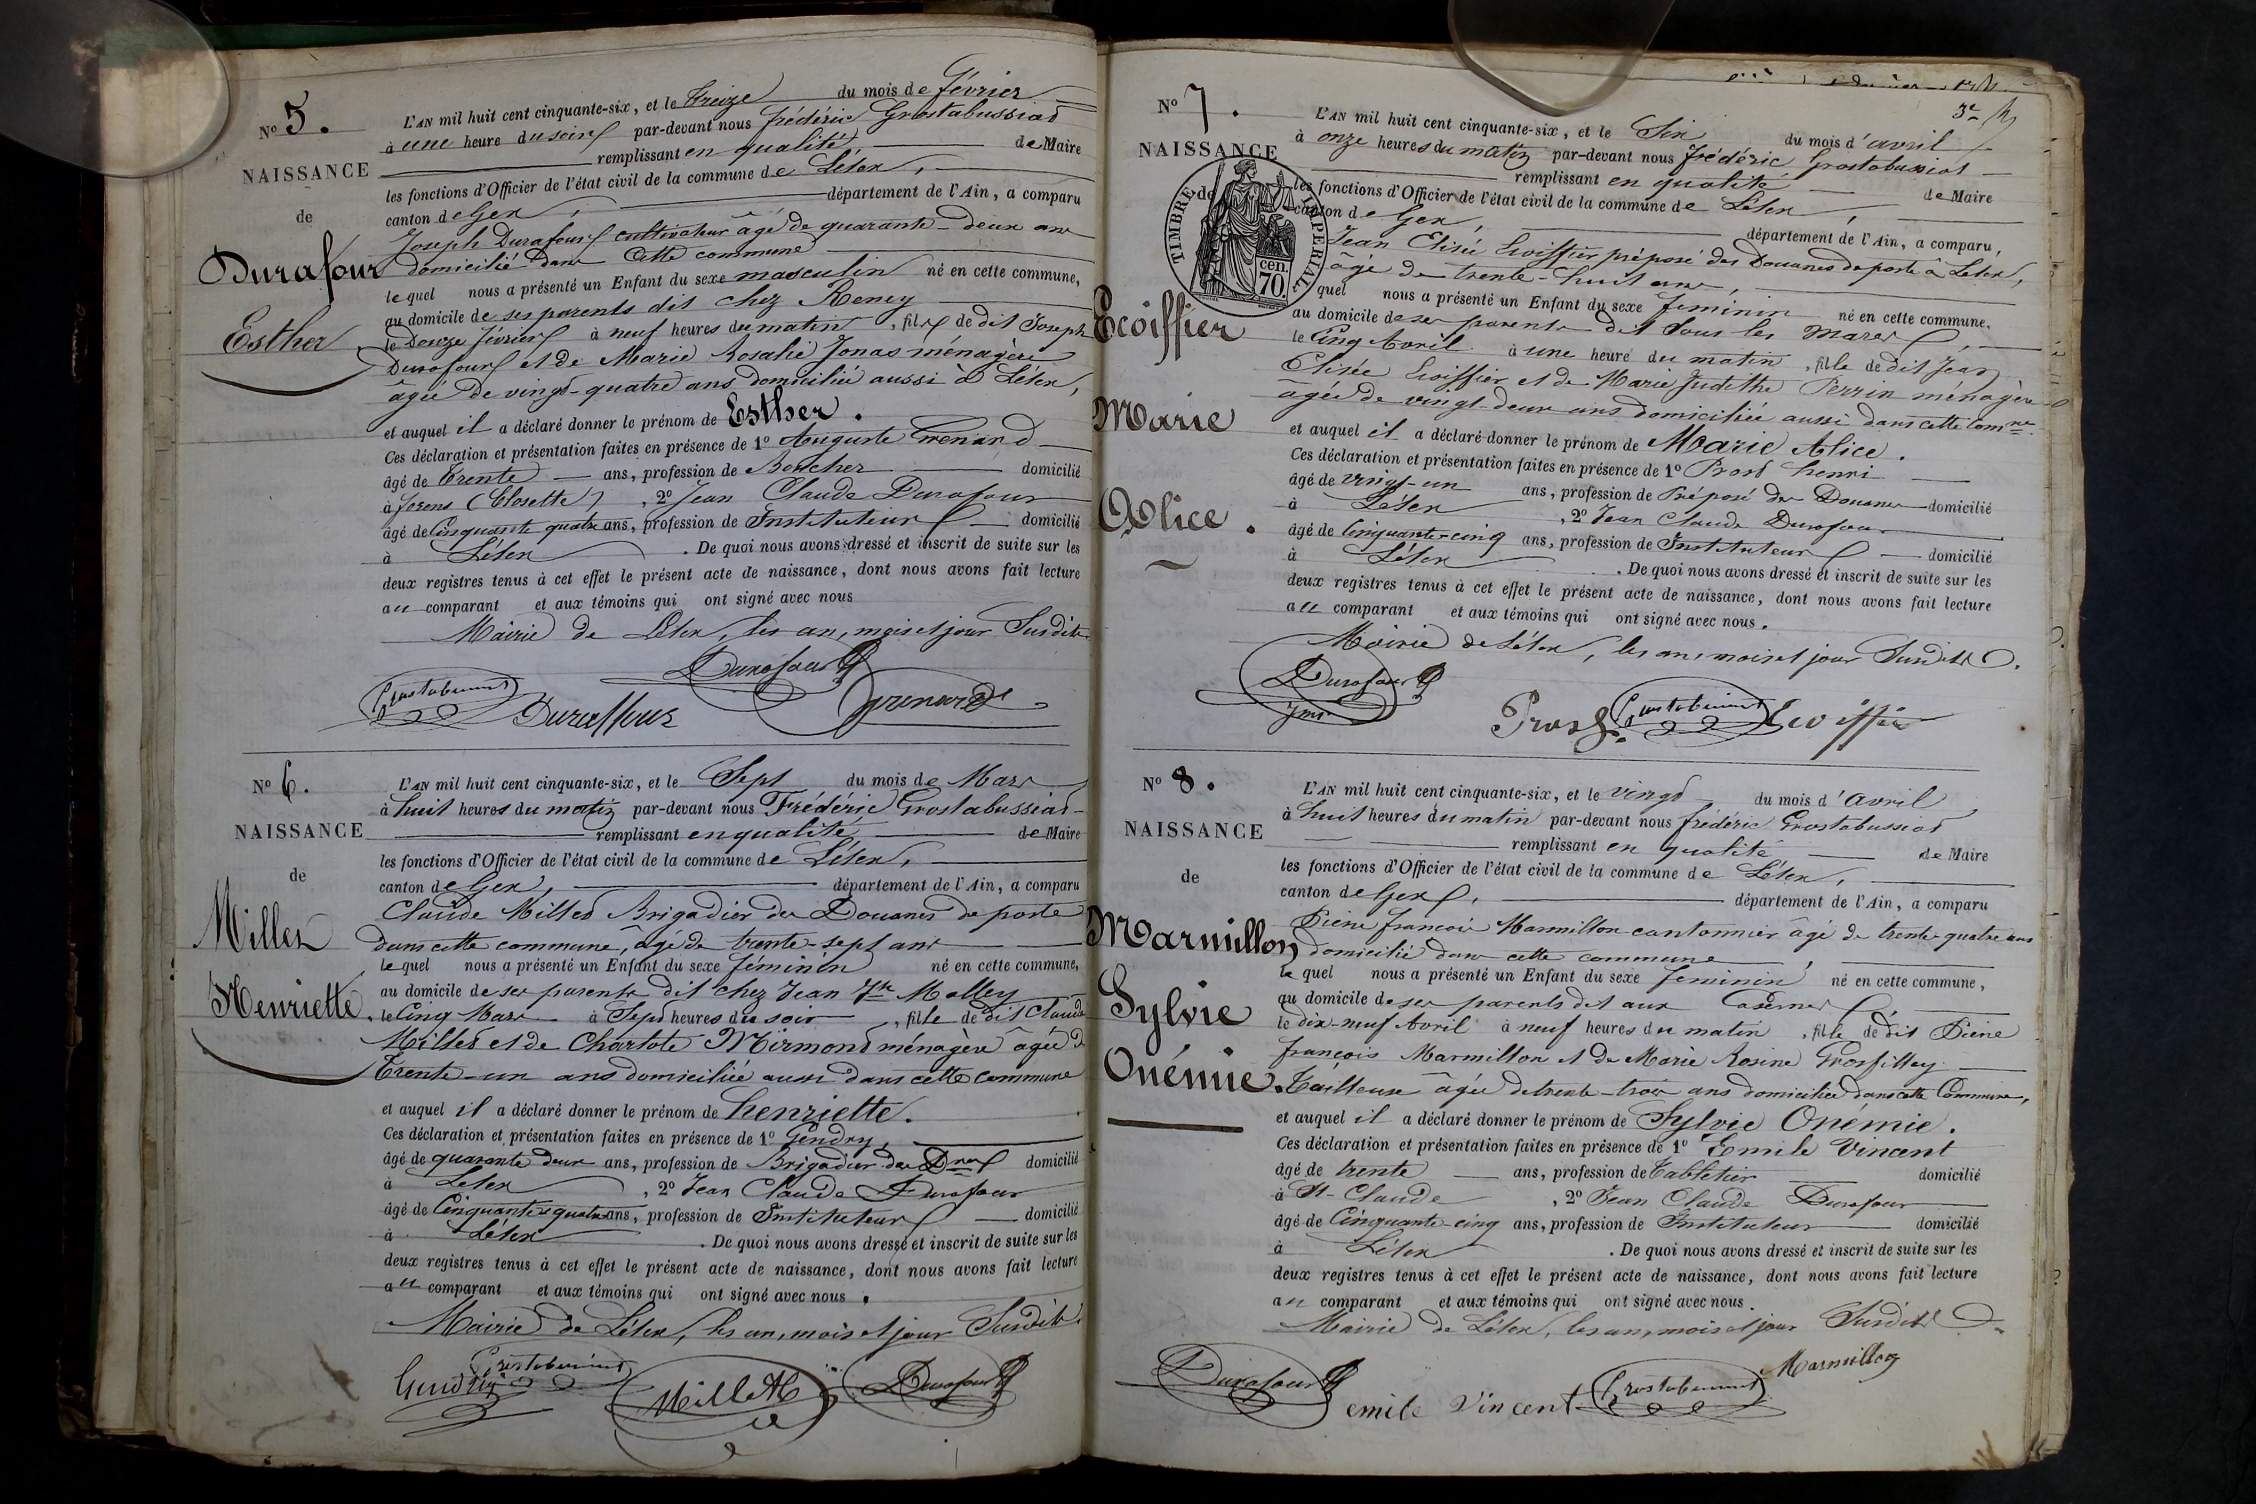 No 5.
NAISSANCE
de
Durafour
Esther
L'AN mil huit cent cinquante-six, et le treize du mois de février
à une heure du soir par-devant nous frédéric Grostabussiat
remplissant en qualité de Maire
les fonctions d'Officier de l'état civil de la commune de Lélex,
canton de Gex, département de l'Ain, a comparu
Joseph Durafour cultivateur âgé de quarante-deux ans
domicilié dans cette commune
lequel nous a présenté un Enfant du sexe masculin né en cette commune,
au domicile de ses parents dit chez Remey
le Douze février à neuf heures du matin, fils de dit Joseph
Durafour et de Marie Rosalie Jonas ménagère
âgée de vingt-quatre ans domiciliée aussi à Lélex,
et auquel il a déclaré donner le prénom de Esther.
Ces déclaration et présentation faites en présence de 1º Auguste Grenard
âgé de trente ans, profession de Boucher domicilié
à forens (Closette), 2º Jean Claude Durafour
âgé de Cinquante quatre ans, profession de Instituteur domicilié
à Lélex. De quoi nous avons dressé et inscrit de suite sur les
deux registres tenus à cet effet le présent acte de naissance, dont nous avons fait lecture
au comparant et aux témoins qui ont signé avec nous
Mairie de Lélex, les an, mois et jour Susdits
Durafour
Grostabussiat Duraffour Grenard
No 6.
NAISSANCE
de
Millet
Henriette
L'AN mil huit cent cinquante-six, et le Sept du mois de Mars
à huit heures du matin par-devant nous Frédéric Grostabussiat
remplissant en qualité de Maire
les fonctions d'Officier de l'état civil de la commune de Lélex,
canton de Gex, département de l'Ain, a comparu
Claude Millet Brigadier des Douanes de poste
dans cette commune, âgé de trente-sept ans
lequel nous a présenté un Enfant du sexe féminin né en cette commune,
au domicile de ses parents dit chez Jean Molley
le Cinq Mars à Sept heures du soir, fille de dit Claude
Millet et de Charlote Mirmond ménagère âgée de
Trente-un ans domiciliée aussi dans cette commune
et auquel il a déclaré donner le prénom de henriette.
Ces déclaration et présentation faites en présence de 1º Gendry,
âgé de quarante deux ans, profession de Brigadier des Dnes domicilié
à Lelex, 2º Jean Claude Durafour
âgé de Cinquante quatre ans, profession de Instituteur domicilié
à Lélex. De quoi nous avons dressé et inscrit de suite sur les
deux registres tenus à cet effet le présent acte de naissance, dont nous avons fait lecture
au comparant et aux témoins qui ont signé avec nous.
Mairie de Lélex, les an, mois et jour Susdits
Gendry Grostabussiat Millet Durafour
3e
No 7.
NAISSANCE
de
TIMBRE IMPERIAL
cen.
70.
Ecoiffier
Marie
Alice.
L'AN mil huit cent cinquante-six, et le Six du mois d'avril
à onze heures du matin par-devant nous frédéric Grostabussiat
remplissant en qualité de Maire
les fonctions d'Officier de l'état civil de la commune de Lélex,
canton de Gex, département de l'Ain, a comparu,
Jean Elisée Ecoiffier préposé des Douanes de poste à Lelex,
âgé de trente-huit ans,
quel nous a présenté un Enfant du sexe feminin né en cette commune,
au domicile de ses parents dit Sous les Mares,
le Cinq Avril à une heure du matin, fille de dit Jean
Elisée Ecoiffier et de Marie Judithe Perrin ménagère
âgée de vingt-deux ans domiciliée aussi dans cette Comne.
et auquel il a déclaré donner le prénom de Marie Alice.
Ces déclaration et présentation faites en présence de 1º Prost henri
âgé de vingt-un ans, profession de Préposé des Douanes domicilié
à Lélex, 2º Jean Claude Durafour
âgé de Cinquante-cinq ans, profession de Instituteur domicilié
à Lélex. De quoi nous avons dressé et inscrit de suite sur les
deux registres tenus à cet effet le présent acte de naissance, dont nous avons fait lecture
au comparant et aux témoins qui ont signé avec nous.
Mairie de Lélex, les an, mois et jour Susdits.
Durafour
Prost Grostabussiat Ecoiffier
No 8.
NAISSANCE
de
Marmillon
Sylvie
Onémie.
L'AN mil huit cent cinquante-six, et le vingt du mois d'avril
à huit heures du matin par-devant nous frédéric Grostabussiat
remplissant en qualité de Maire
les fonctions d'Officier de l'état civil de la commune de Lélex,
canton de Gex, département de l'Ain, a comparu
Pierre françois Marmillon cantonnier âgé de trente-quatre ans
domicilié dans cette commune,
le quel nous a présenté un Enfant du sexe feminin né en cette commune,
au domicile de ses parents dit aux Casernes,
le dix-neuf Avril à neuf heures du matin, fille de dit Pierre
françois Marmillon et de Marie Rosine Grosfilley
Tailleuse âgée de trente-trois ans domiciliée dans cette Commune,
et auquel il a déclaré donner le prénom de Sylvie Onémie.
Ces déclaration et présentation faites en présence de 1º Emile Vincent
âgé de trente ans, profession de Tabletier domicilié
à St-Claude, 2º Jean Claude Durafour
âgé de Cinquante-cinq ans, profession de Instituteur domicilié
à Lélex. De quoi nous avons dressé et inscrit de suite sur les
deux registres tenus à cet effet le présent acte de naissance, dont nous avons fait lecture
au comparant et aux témoins qui ont signé avec nous.
Mairie de Lélex, les an, mois et jour Susdits
Durafour emile Vincent Grostabussiat Marmillon